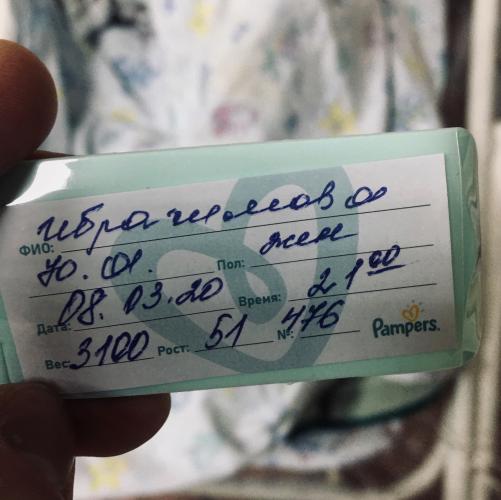 ФИО: Ибрагимова
Ю. А. Пол: жен
Дата: 08.03.20 Время: 21 00
Вес: 3100 Рост: 51 №: 476
Pampers.